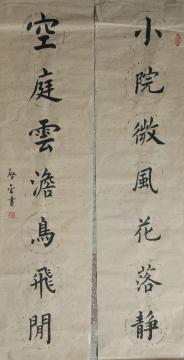 小院微風花落靜
空庭雲澹鳥飛閒
啓金書